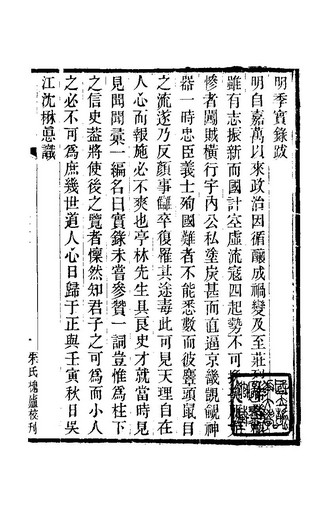 明季實錄跋
明自嘉萬以來政治因循釀成禍變及至莊烈
雖有志振新而國計空虛流寇四起勢不可
慘者闖賊橫行宇內公私塗炭甚而直逼京畿覬覦神
器一時忠臣義士殉國難者不能悉數而彼麞頭鼠目
之流遂乃反顏事讎卒復罹其塗毒此可見天理自在
人心而報施必不爽也亭林先生具良史才就當時見
見聞聞彙一編名曰實錄未嘗參贊一詞豈惟為柱下
之信史葢將使後之覽者懍然知君子之可為而小人
之必不可為庶幾世道人心日歸于正與壬寅秋日吳
江沈楙悳識
朱氏槐廬校刋